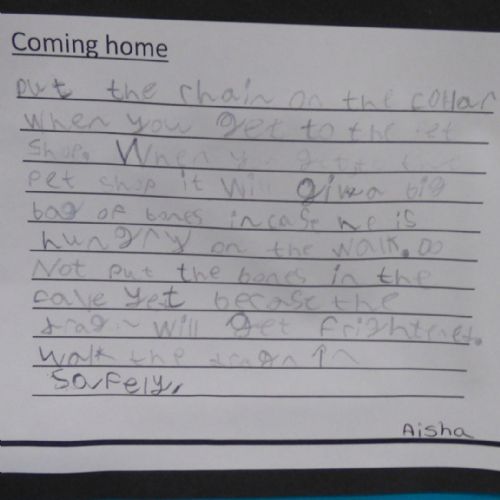 Coming home
put the chain on the collar
When you get to the pet
shop. When you get to the
pet shop it will give a big
bag of bones in case he is
hungry on the walk. Do
Not put the bones in the
cave yet becase the
dragin will get frightened.
walk the dragn in
Safely.
Aisha